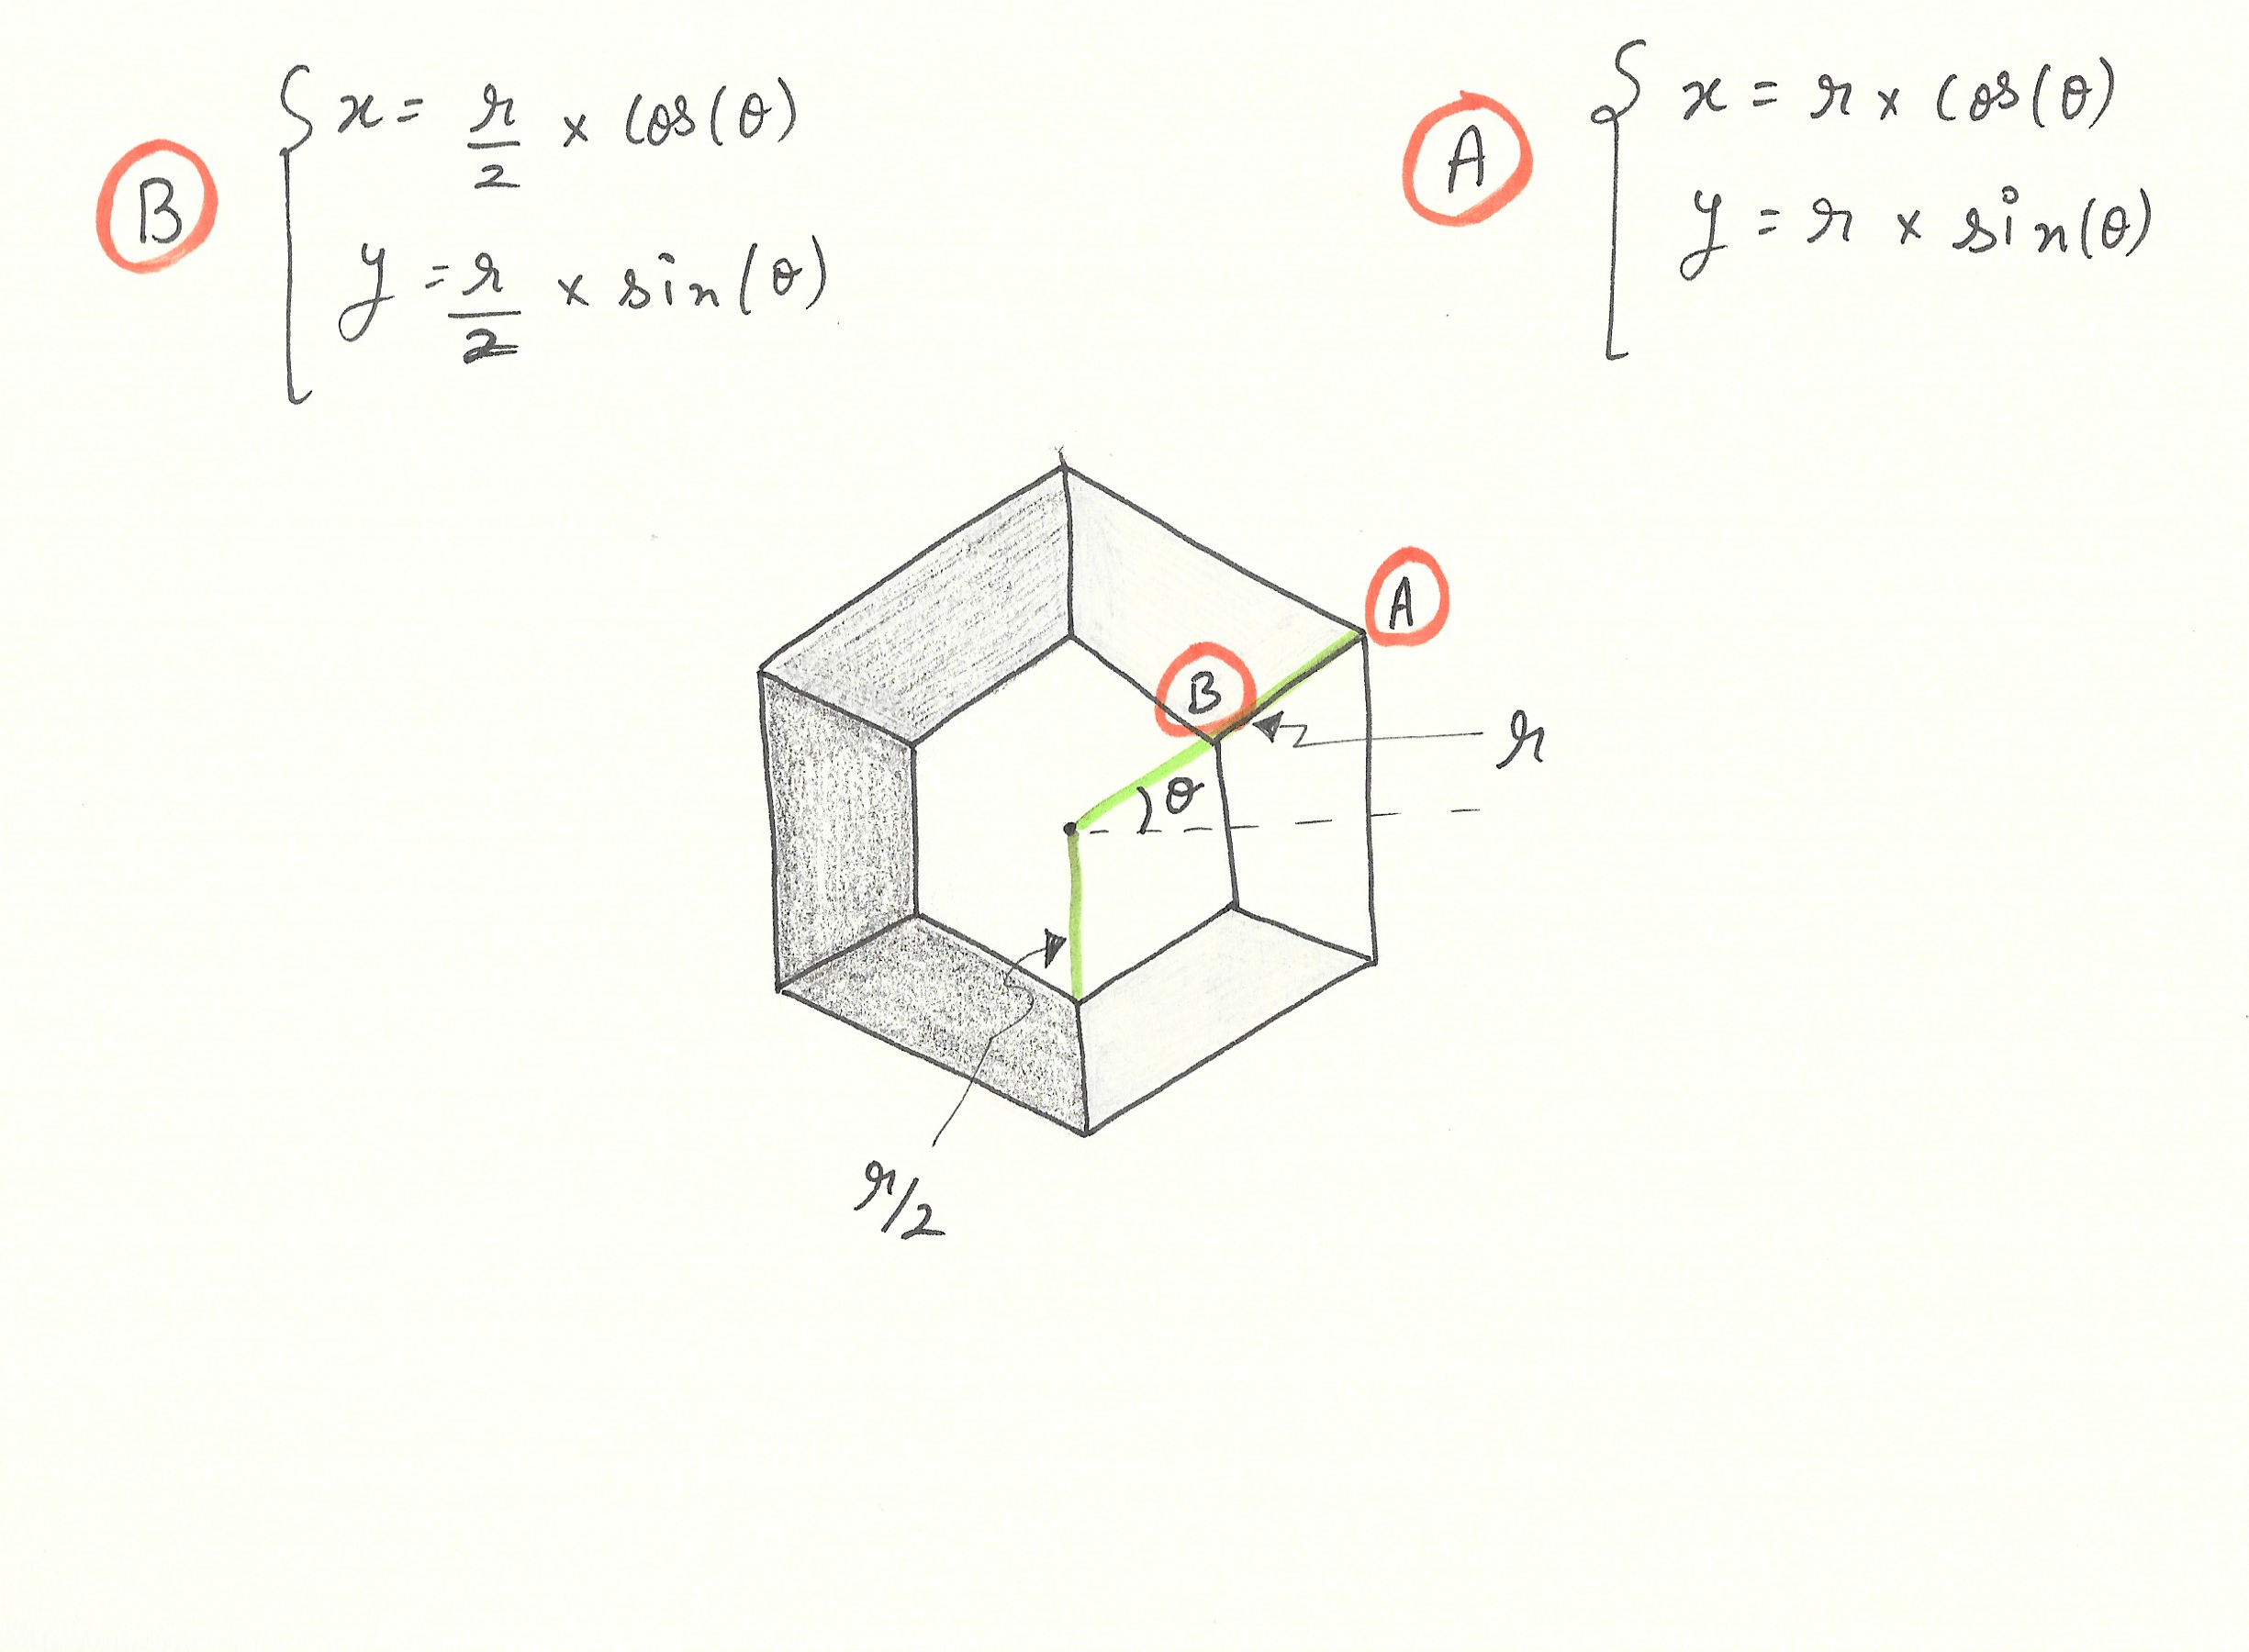 B
x = r/2 × cos(θ)
y = r/2 × sin(θ)
A
x = r × cos(θ)
y = r × sin(θ)
A
B
r
θ
r/2